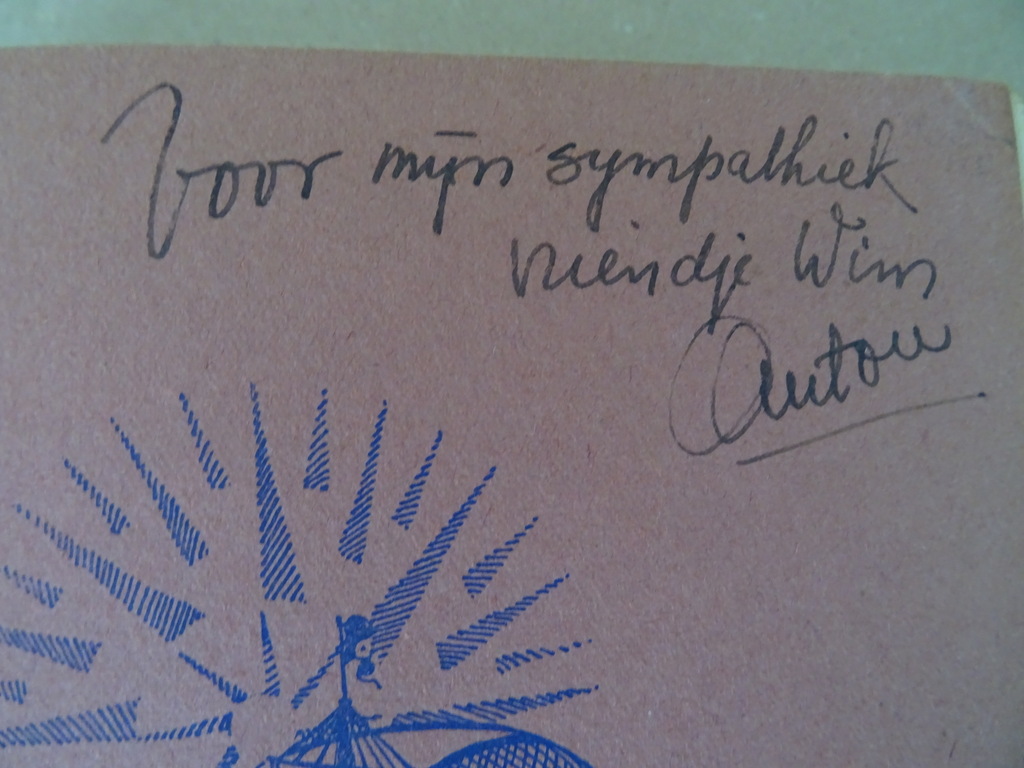 Voor mijn sympathiek
vriendje Wim
Anton